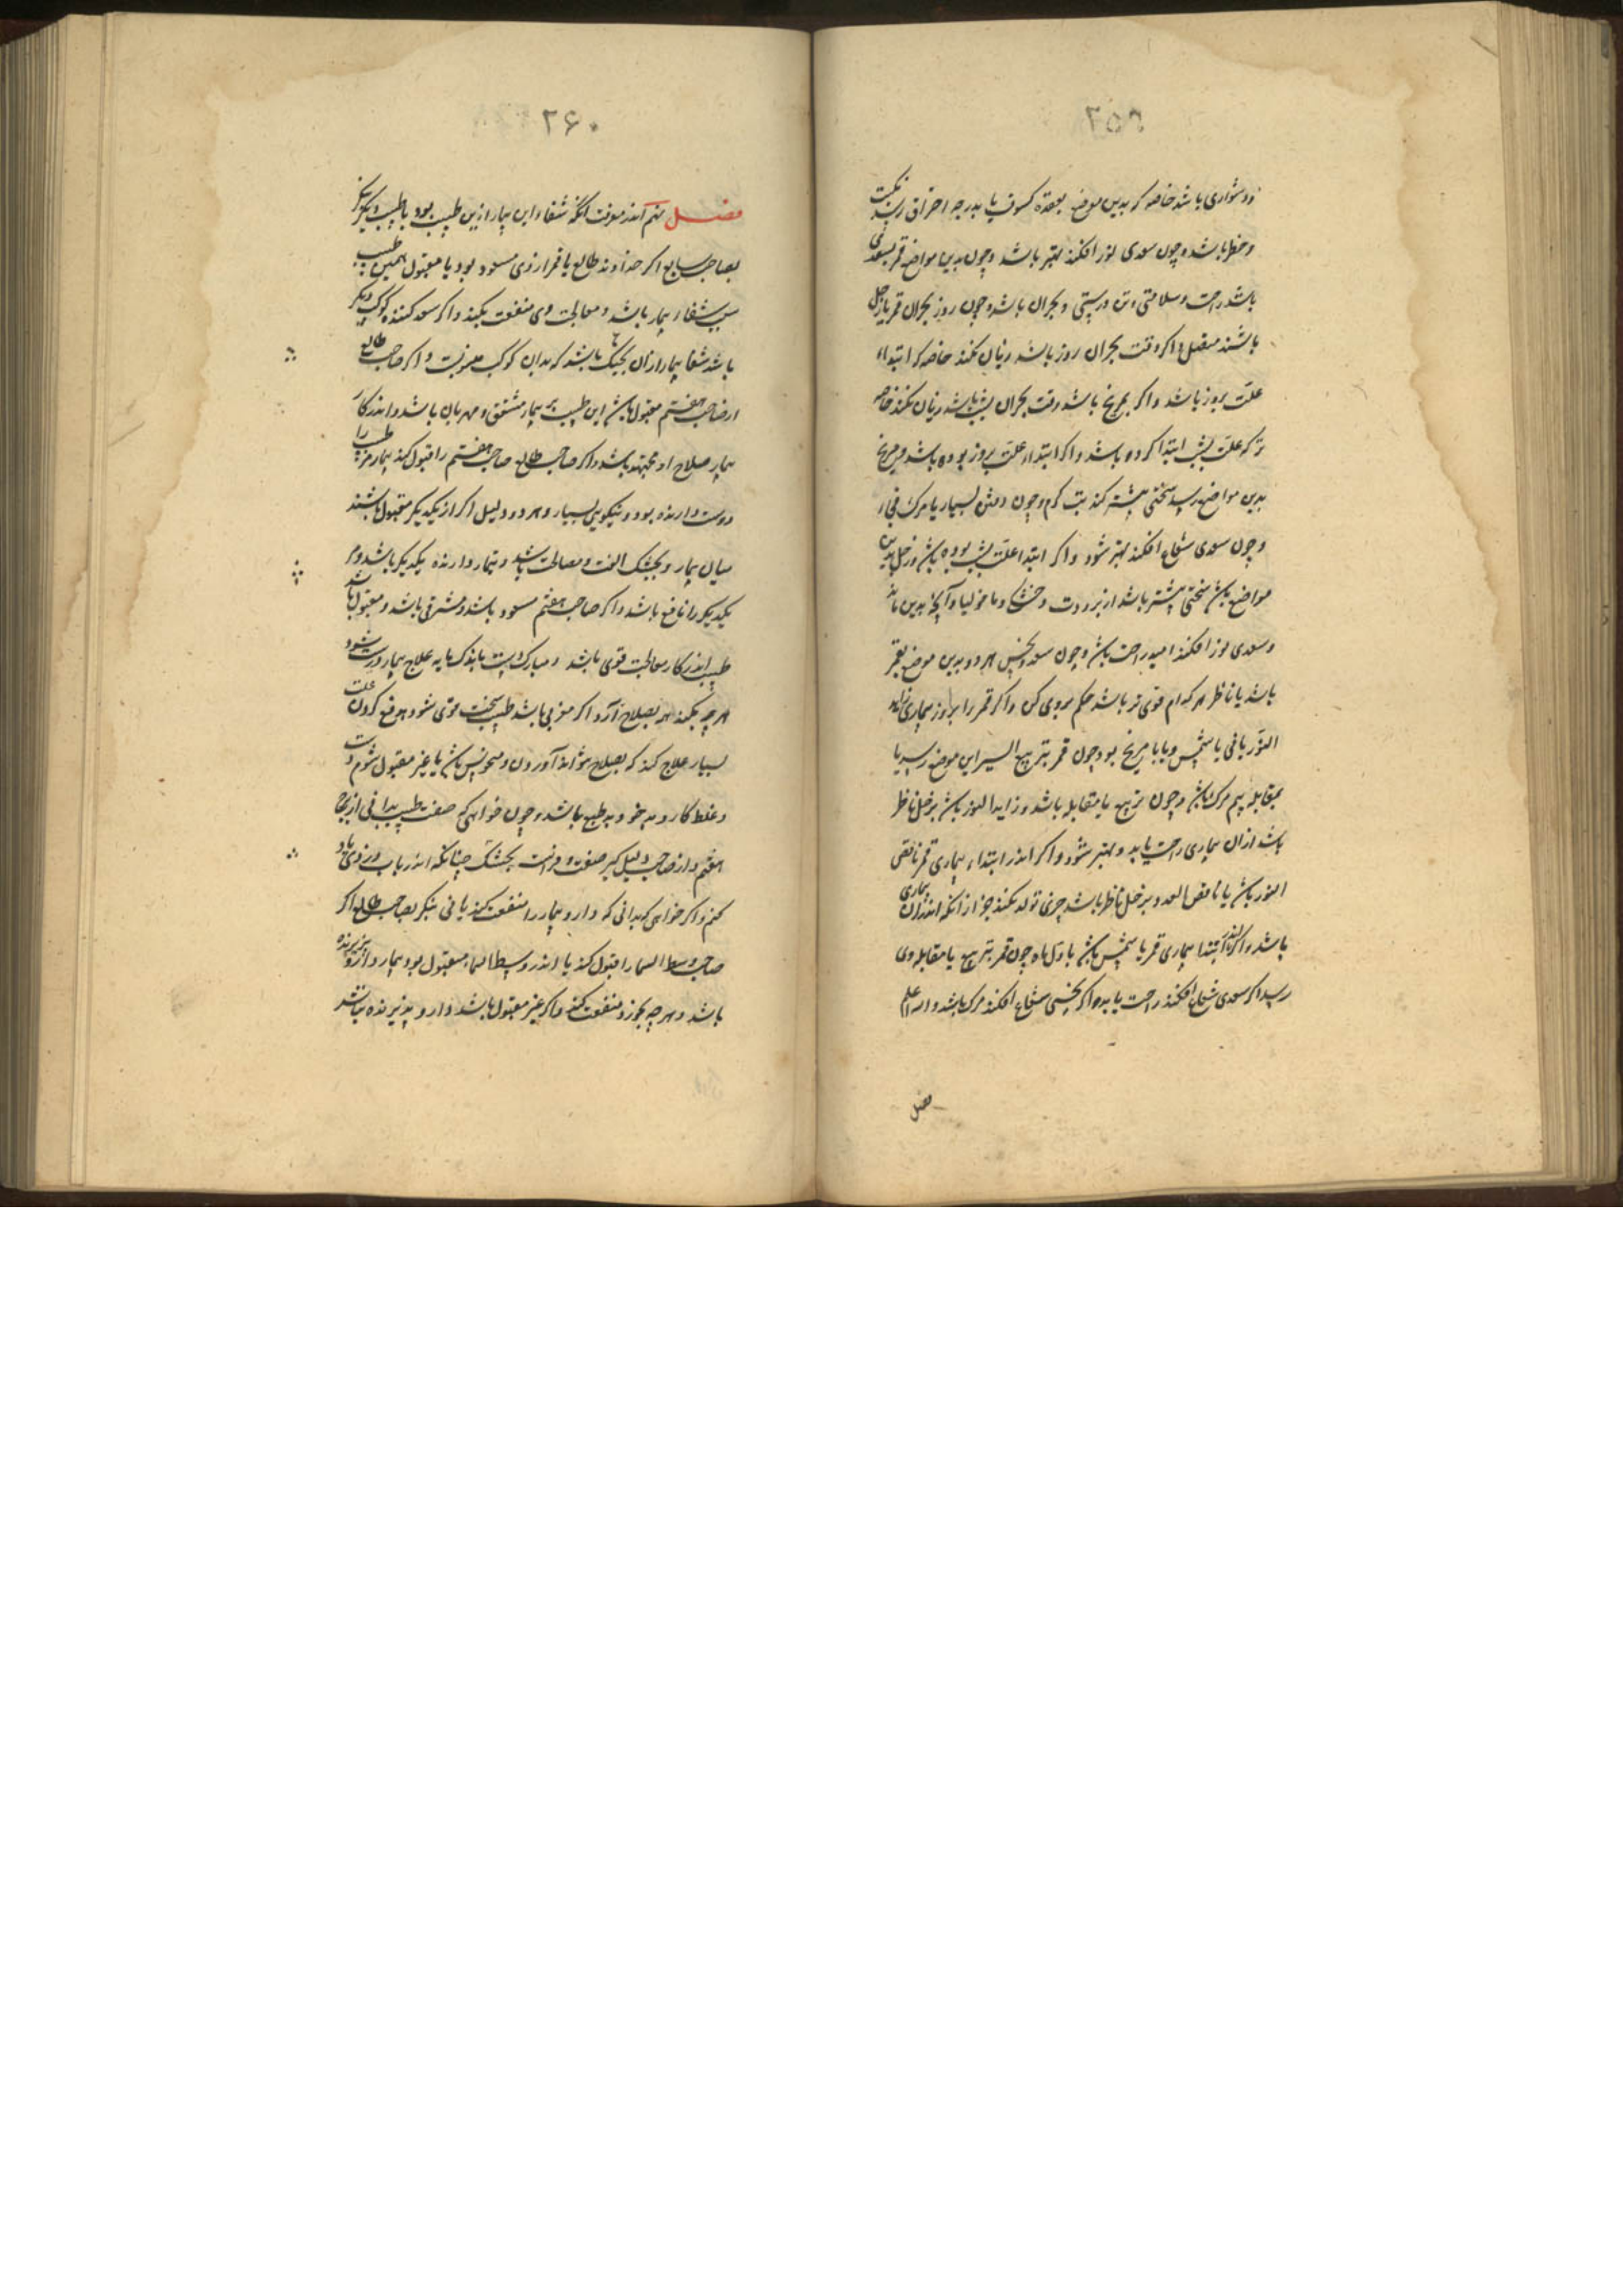 ۲۵۹
ودشواری باشد خاصه که بدین موضع بعقده کسوف یا بدرجه احتراق رسد
وخطر باشد و چون سعدی نور افکند بهتر باشد و چون بدین مواضع قمر بسعدی
باشد راحت و سلامتی وتن درستی و بحران باشد و چون روز بحران قمر بازحل
باشند متصل اکر وقت بحران روز باشد زیان نکند خاصه که ابتداء
علت بروز باشد واکر بمریخ باشد وقت بحران بشب باشد زیان نکند خاصه
ترکه علت بشب ابتدا کرده باشد واکر ابتداء علت بروز بوده باشد و مریخ
بدین مواضع رسد سختی بیشتر کند تب کرم وچون دمش بسیار یا مرک فجاء
وچون سعدی شعاع افکند بهتر شود واکر ابتدا علت بشب بوده باشد وزحل بدین
مواضع باشد سختی بیشتر باشد از برودت وخشکی وماخولیا وآنچه بدین ماند
وسعدی نور افکند امید راحت باشد وچون سعد ونحس هر دو بدین موضع بقمر
باشد یا ناظر هر کدام قوی تر باشد حکم بروی کن واکر قمر را بروز بیماری زاید
النور یافی یا شمس ویا با مریخ بود چون قمر بتربیع السیر این موضع رسد یا
بمقابله بیم مرک باشد وچون تربیع یا مقابله باشد وزاید النور باشد بزحل ناظر
باشد ازان بیماری راحت یابد وبهتر شود واکر اندر ابتداء بیماری قمر ناقص
النور باشد یا ناقص العدد وبزحل ناظر باشد چیزی تولد نکند جز از انکه اندران بیماری
باشد واکر اندر ابتدا بیماری قمر با شمس باشد باول ماه چون قمر بتربیع یا مقابله وی
رسد اکر سعدی شعاع افکند راحت یابد واکر نحسی شعاع افکند مرک باشد والله اعلم
فصل
۲۶۰
فصل نهم اندر معرفت انکه شفاء این بیمار ازین طبیب بود یا طبیب دیکر بنکر
بصاحب سابع اکر خداوند طالع یا قمر ازوی مسعود بود یا مقبول همین طبیب
سبب شفاء بیمار باشد ومعالجت وی منفعت بکند واکر سعد کننده کوکب دیکر
باشد شفا بیمار ازان بجشک باشد که بدان کوکب منسوبست واکر صاحب طالع
ازصاحب هفتم مقبول باشد این طبیب بر بیمار مشفق ومهربان باشد واندر کار
بیمار صلاح او مجتهد باشد واکر صاحب طالع صاحب هفتم را قبول کند بیمار مر طبیب را
دوست دارنده بود ونیکویی بسیار وهر دو دلیل اکر از یکدیکر مقبول باشند
میان بیمار وبجشک الفت ومصالحت باشد وتیمار دارنده یکدیکر باشد ومر
یکدیکر را نافع باشد واکر صاحب هفتم مسعود باشد ومشرقی باشد ومقبول باشد
طبیب اندر کار معالجت قوی باشد ومبارک دست باندک مایه علاج بیمار درست شود
هرچه بکند همه بصلاح آرد اکر مغربی باشد طبیب سخت قوی شود بدفع کردن علت
بسیار علاج کند که بصلاح نتواند آوردن ومنحوس باشد یا غیر مقبول شوم دست
وغلط کار وبدخو وبد طبع باشد وچون خواهی که صفت طبیب بدانی از برج
هفتم واز صاحب دلیل کیر صفت وفراست بجشک چنانکه اندر باب دزدی یاد
کنم واکر خواهی که بدانی که دارو بیمار را منفعت کند یا نی بنکر بصاحب طالع اکر
صاحب وسط السماء را قبول کند یا اندر وسط السماء مقبول بود بیمار دارو پذیرنده
باشد وهرچه بخورد منفعت کند واکر غیر مقبول باشد دارو پذیرنده نباشد